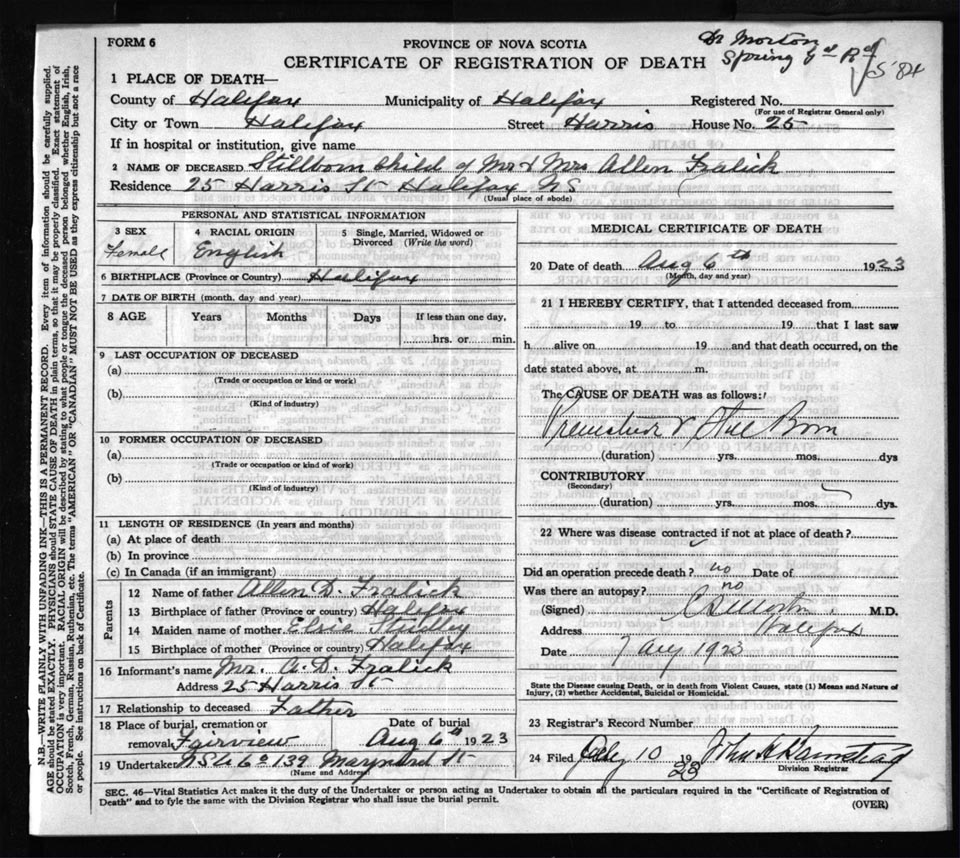 Dr Morton
Spring Gd Rd
584
FORM 6
PROVINCE OF NOVA SCOTIA
CERTIFICATE OF REGISTRATION OF DEATH
1 PLACE OF DEATH—
County of Halifax Municipality of Halifax Registered No.
(For use of Registrar General only)
City or Town Halifax Street Harris House No. 25
If in hospital or institution, give name
2 NAME OF DECEASED Stillborn child of Mr & Mrs Allen Fralick
Residence 25 Harris St Halifax NS
(Usual place of abode)
PERSONAL AND STATISTICAL INFORMATION
3 SEX 4 RACIAL ORIGIN 5 Single, Married, Widowed or Divorced (Write the word)
Female English
6 BIRTHPLACE (Province or Country) Halifax
7 DATE OF BIRTH (month, day and year)
8 AGE Years Months Days If less than one day,
hrs. or min.
9 LAST OCCUPATION OF DECEASED
(a)
(Trade or occupation or kind or work)
(b)
(Kind of industry)
10 FORMER OCCUPATION OF DECEASED
(a)
(Trade or occupation or kind of work)
(b)
(Kind of industry)
11 LENGTH OF RESIDENCE (In years and months)
(a) At place of death
(b) In province
(c) In Canada (if an immigrant)
Parents
12 Name of father Allen D. Fralick
13 Birthplace of father (Province or country) Halifax
14 Maiden name of mother Elsie Studley
15 Birthplace of mother (Province or country) Halifax
16 Informant's name Mr. A. D. Fralick
Address 25 Harris St
17 Relationship to deceased Father
18 Place of burial, cremation or Date of burial
removal Fairview Aug 6th 1923
19 Undertaker 139 Maynard St
(Name and Address)
MEDICAL CERTIFICATE OF DEATH
20 Date of death Aug 6th 1923
(Month, day and year)
21 I HEREBY CERTIFY, that I attended deceased from
19 to 19 that I last saw
h alive on 19 and that death occurred, on the
date stated above, at m.
The CAUSE OF DEATH was as follows:
Premature & Still Born
(duration) yrs. mos. dys
CONTRIBUTORY
(Secondary)
(duration) yrs. mos. dys.
22 Where was disease contracted if not at place of death?
Did an operation precede death? no Date of
Was there an autopsy? no
(Signed) Morton M.D.
Address Halifax
Date 7 Aug 1923
State the Disease causing Death, or in death from Violent Causes, state (1) Means and Nature of
Injury, (2) whether Accidental, Suicidal or Homicidal.
23 Registrar's Record Number
24 Filed 10 23 John
Division Registrar
SEC. 46—Vital Statistics Act makes it the duty of the Undertaker or person acting as Undertaker to obtain all the particulars required in the "Certificate of Registration of
Death" and to fyle the same with the Division Registrar who shall issue the burial permit.
(OVER)
N.B.—WRITE PLAINLY WITH UNFADING INK—THIS IS A PERMANENT RECORD. Every item of information should be carefully supplied.
AGE should be stated EXACTLY. PHYSICIANS should STATE CAUSE OF DEATH in plain terms, so that it may be properly classified. Exact statement of
OCCUPATION is very important. RACIAL ORIGIN will be described by stating to what people or tongue the deceased person belonged whether English, Irish,
Scotch, French, German, Russian, Ruthenian, etc. The terms "AMERICAN" OR "CANADIAN" MUST NOT BE USED as they express citizenship but not a race
of people. See instructions on back of Certificate.